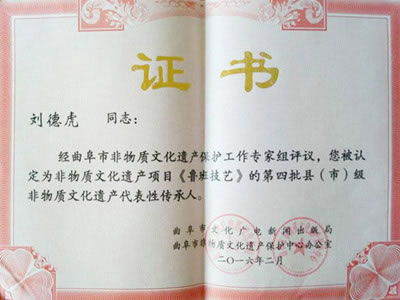 证书
刘德虎 同志：
经曲阜市非物质文化遗产保护工作专家组评议，您被认
定为非物质文化遗产项目《鲁班技艺》的第四批县（市）级
非物质文化遗产代表性传承人。
曲阜市文化广电新闻出版局
曲阜市非物质文化遗产保护中心办公室
二〇一六年二月